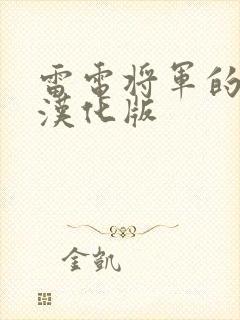 雷電將軍的
漢化版
金凱